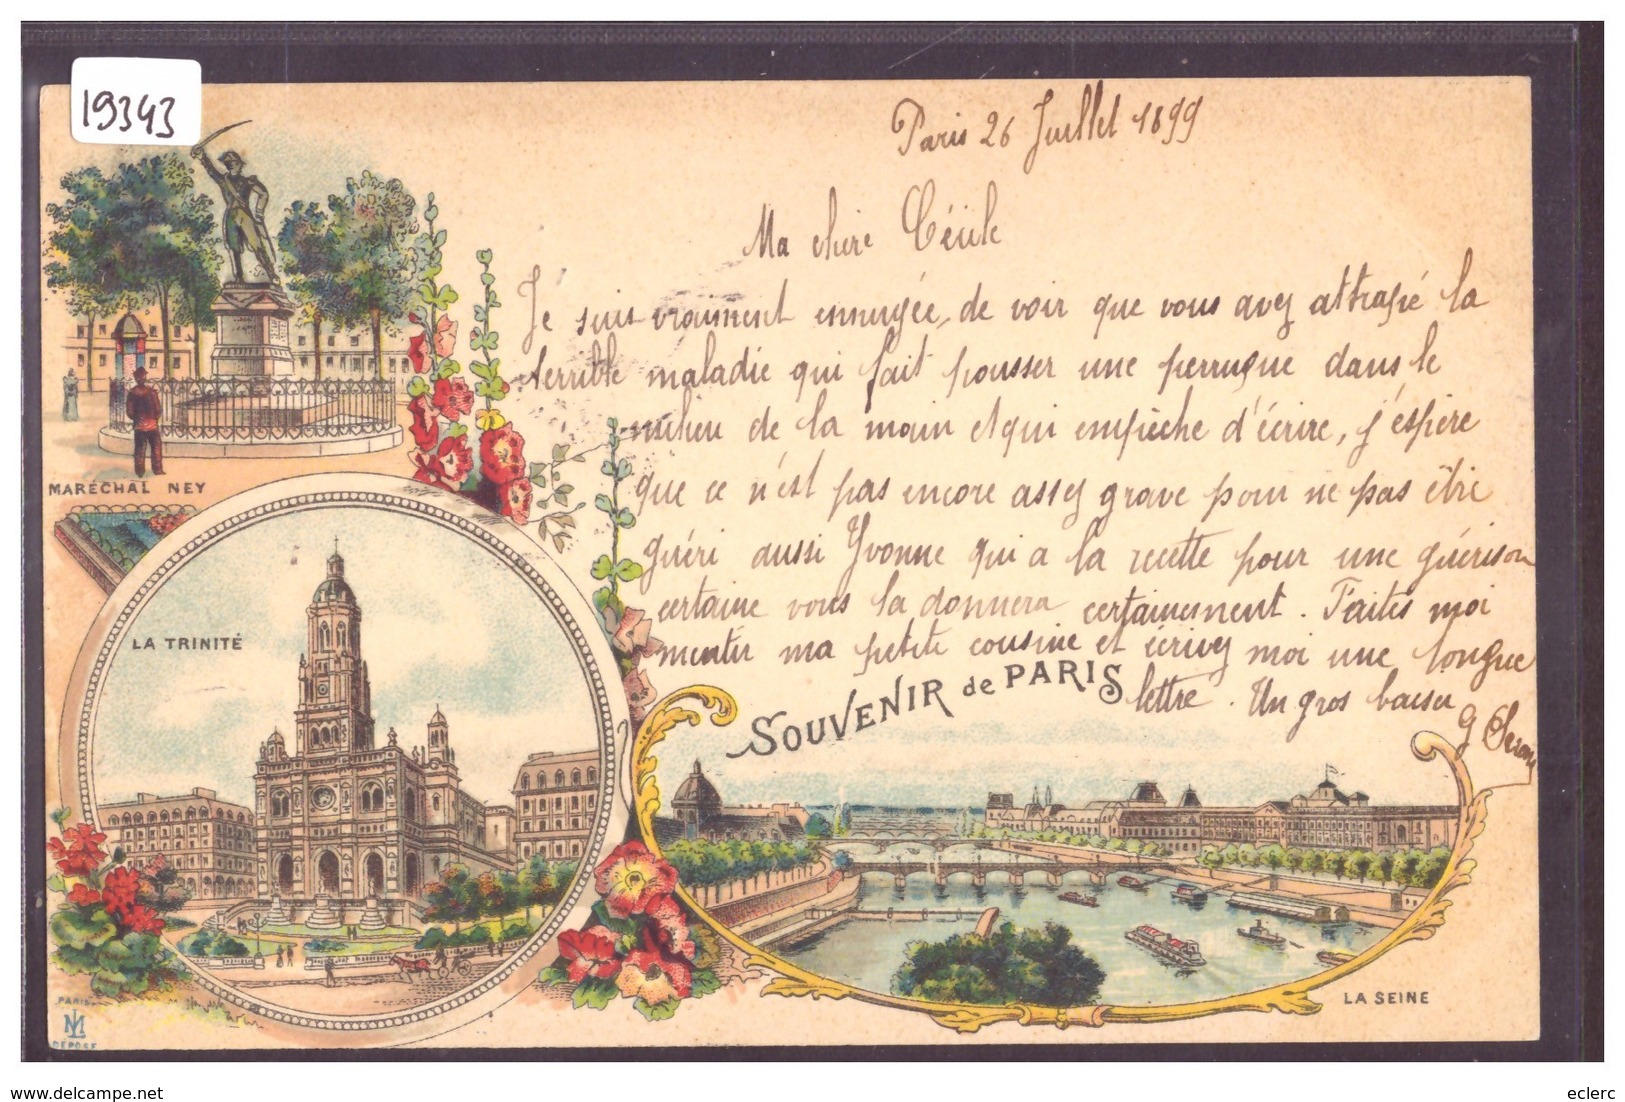 19343
Paris 26 Juillet 1899
Ma chère Cécile
Je suis vraiment ennuyée, de voir que vous avez attrapé la
terrible maladie qui fait pousser une perruque dans le
milieu de la main et qui empêche d'écrire, j'espère
que ce n'est pas encore assez grave pour ne pas être
guéri aussi Yvonne qui a la recette pour une guérison
certaine vous la donnera certainement. Faites moi
mentir ma petite cousine et écrivez moi une longue
lettre. Un gros baiser
G
MARÉCHAL NEY
LA TRINITÉ
SOUVENIR de PARIS
LA SEINE
PARIS
DEPOSE
www.delcampe.net
eclerc